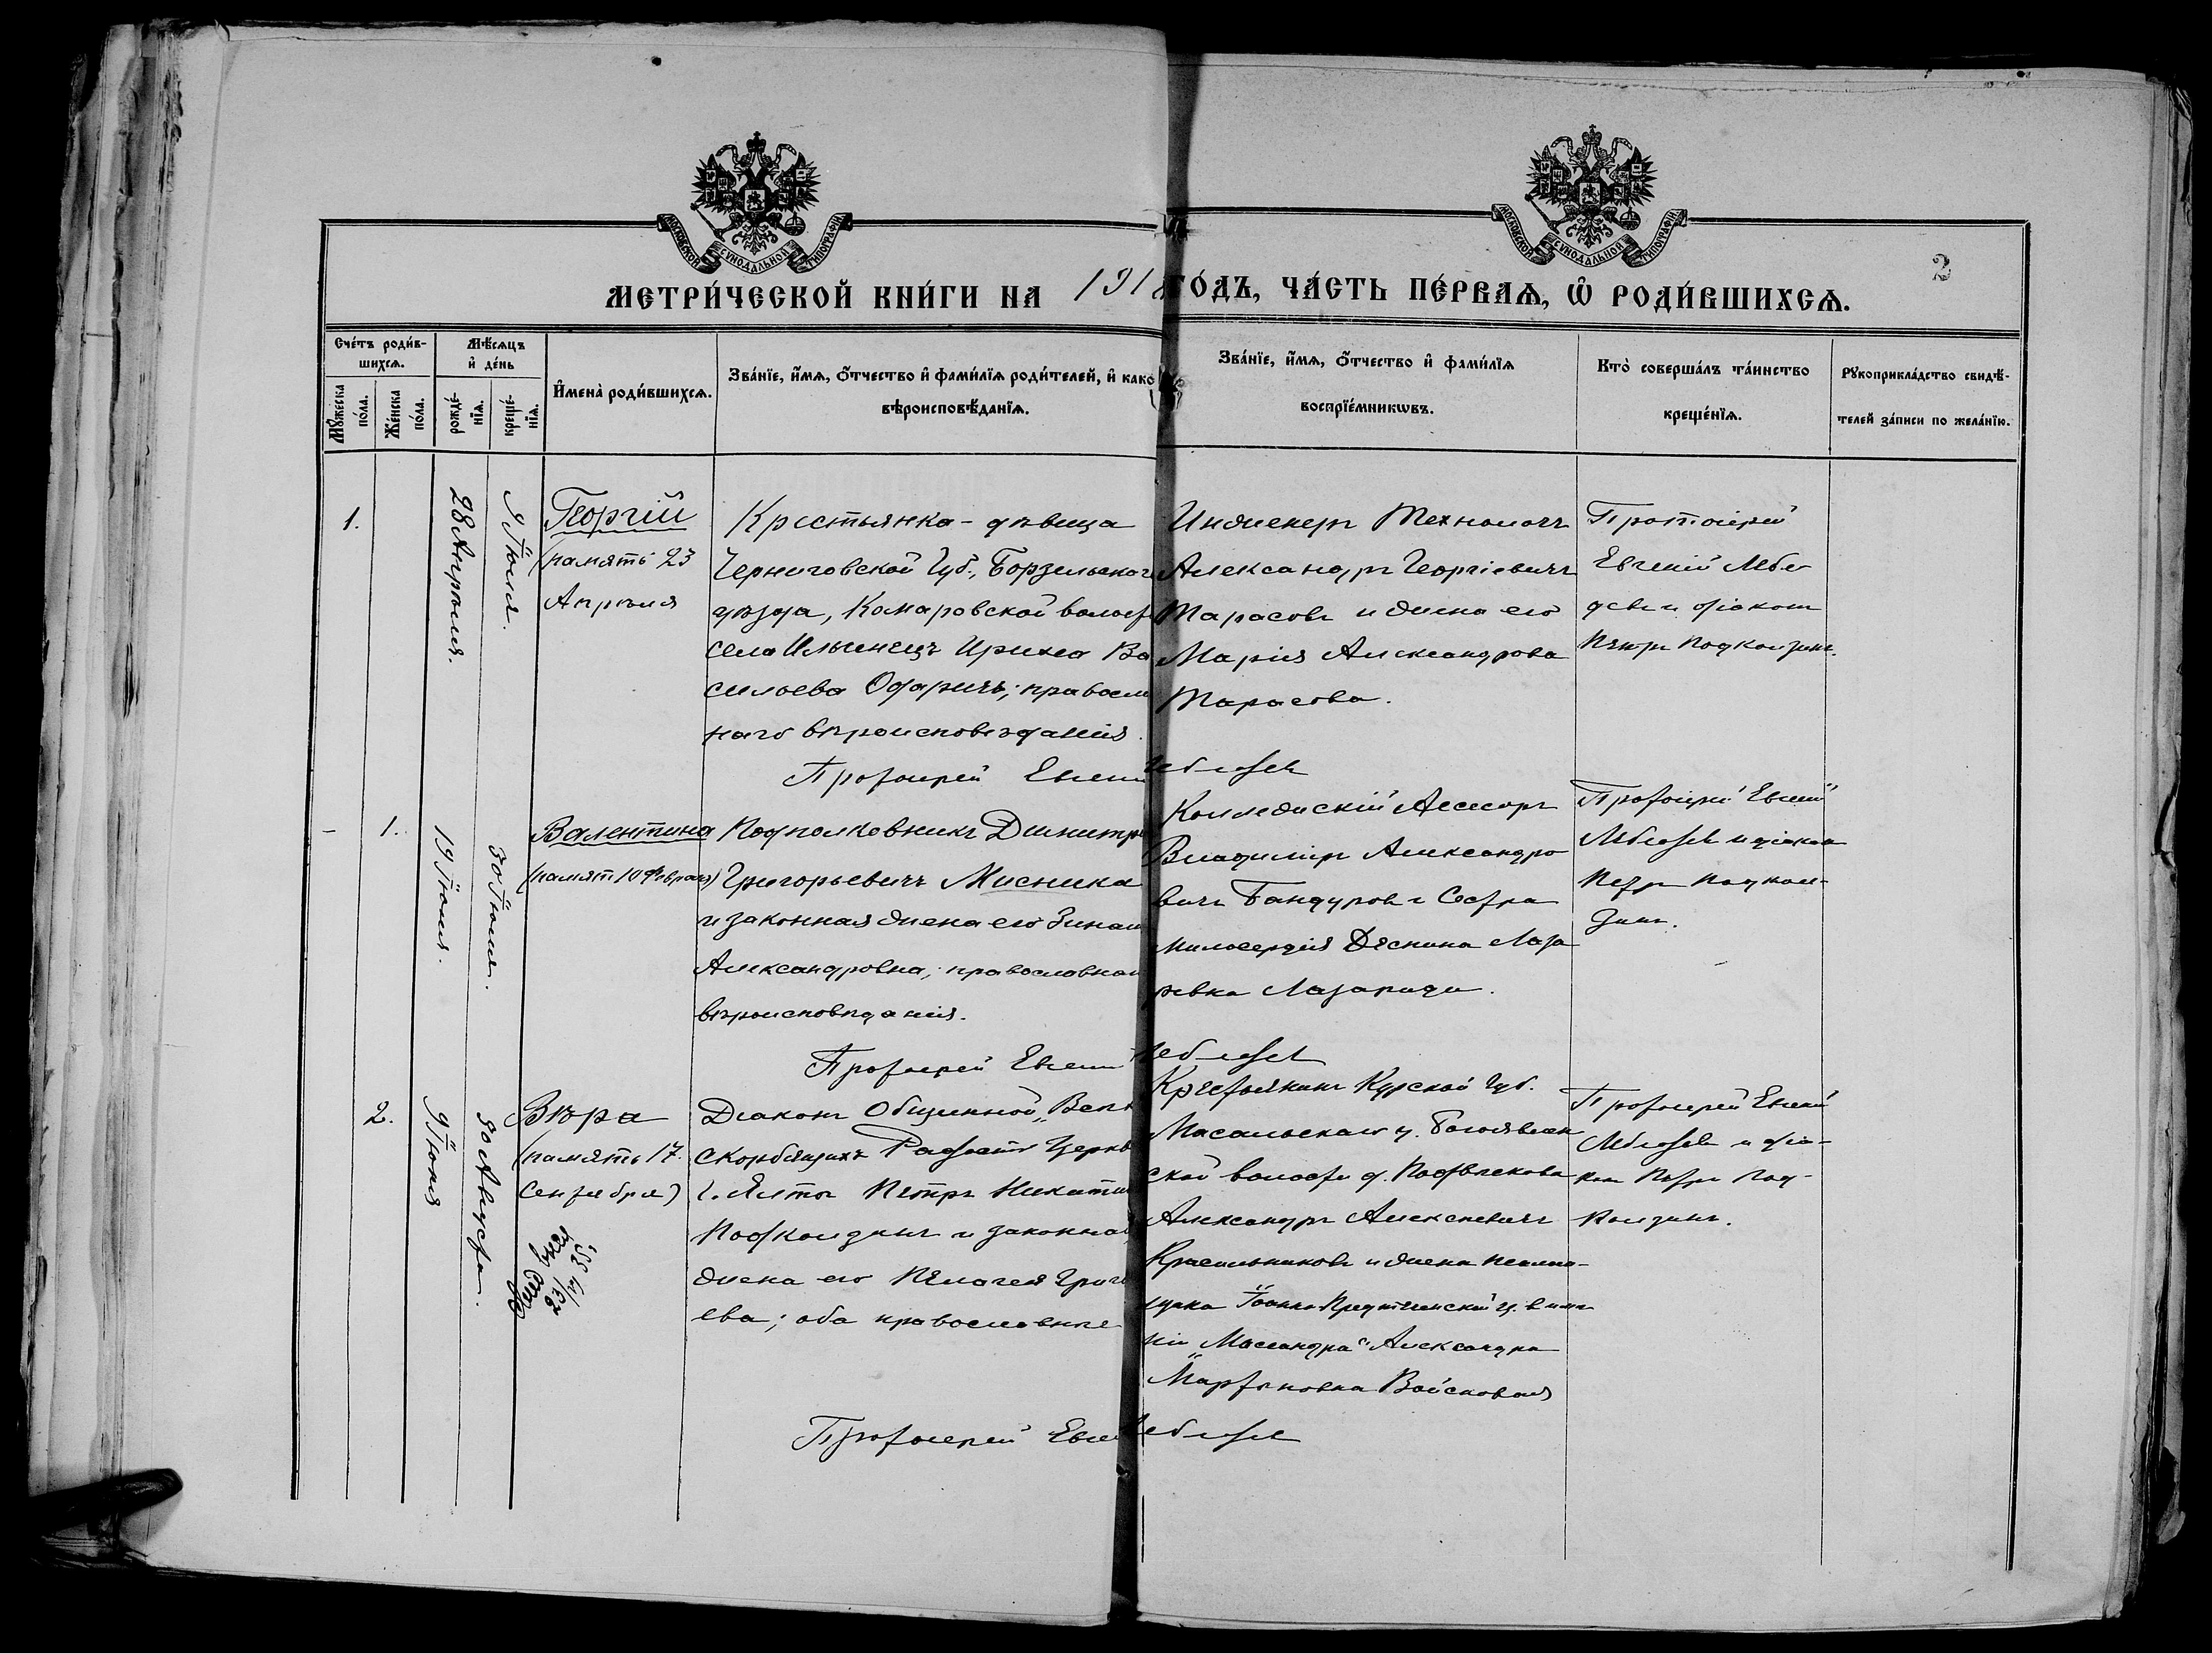 МОСКОВСКОЙ СѴНОДАЛЬНОЙ ТИПОГРАФІИ
МОСКОВСКОЙ СѴНОДАЛЬНОЙ ТИПОГРАФІИ
2
МЕТРИ́ЧЕСКОЙ КНИ́ГИ НА 191
ГО́ДЪ, ЧА́СТЬ ПЕ́РВАѦ, Ѡ҆ РОДИ́ВШИХСѦ.
Сче́тъ роди́в-
шихсѧ.
Мѣ́сѧцъ
и҆ де́нь
Мꙋ́жеска
по́ла.
Же́нска
по́ла.
рожде́-
нїѧ.
креще́-
нїѧ.
И҆мена̀ роди́вшихсѧ.
Зва́нїе, и҆́мѧ, ѻ҆́тчество и҆ фами́лїѧ роди́телей, и҆ како
вѣроисповѣ́данїѧ.
Зва́нїе, и҆́мѧ, ѻ҆́тчество и҆ фами́лїѧ
воспрїе́мникѡвъ.
Кто̀ соверша́лъ та́инство
креще́нїѧ.
Рꙋкоприкла́дство свидѣ́-
телей за́писи по жела́нїю.
1.
28 Апрѣля.
9 Іюля.
Георгій
(память 23
Апрѣля
Крестьянка-дѣвица
Черниговской Губ., Борзенскаго
уѣзда, Комаровской волос
села Ильинецъ Ирина Ва
сильева Одаричъ; правосл
наго вѣроисповѣданія.
Инженеръ Технологъ
Александръ Георгіевичъ
Тарасовъ и жена его
Марія Александрова
Тарасова.
Протоіерей
Евгеній Лебе
девъ и діаконъ
Петръ Подкользинъ.
Протоіерей Евгеній Лебедевъ
- 1.
19 Іюня.
30 Іюля.
Валентина
(память 10 Февраля)
Подполковникъ Димитрі
Григорьевичъ Мисника
и законная жена его Зинаи
Александровна; православнаго
вѣроисповѣданія.
Коллежскій Ассесоръ
Владиміръ Александро
вичъ Бандуровъ и Сестра
милосердія Деспина Лаза
ревна Лазариди.
Протоіерей Евгеній
Лебедевъ и діаконъ
Петръ Подколь-
зинъ.
Протоіерей Евгеній Лебедевъ
2.
9 Іюня
30 Августа.
Вѣра
(память 17
Сентября)
23/
35.
Діаконъ Общинной „Всѣхъ
скорбящихъ Радости" Церкви
г. Ялты Петръ Никити
Подкользинъ и законная
жена его Пелагея Григ
ева; оба православные
Крестьянинъ Курской Губ.
Богоявлен
ской волости д.
Александръ Алексѣевичъ
Красильниковъ и жена псалом-
щика Іоанно-Предтеченской ц. въ имѣ
ніи „Массандра" Александра
Мартыновна Войсковая
Протоіерей Евгеній
Лебедевъ и діа-
конъ Петръ Под-
кользинъ.
Протоіерей Евгеній Лебедевъ